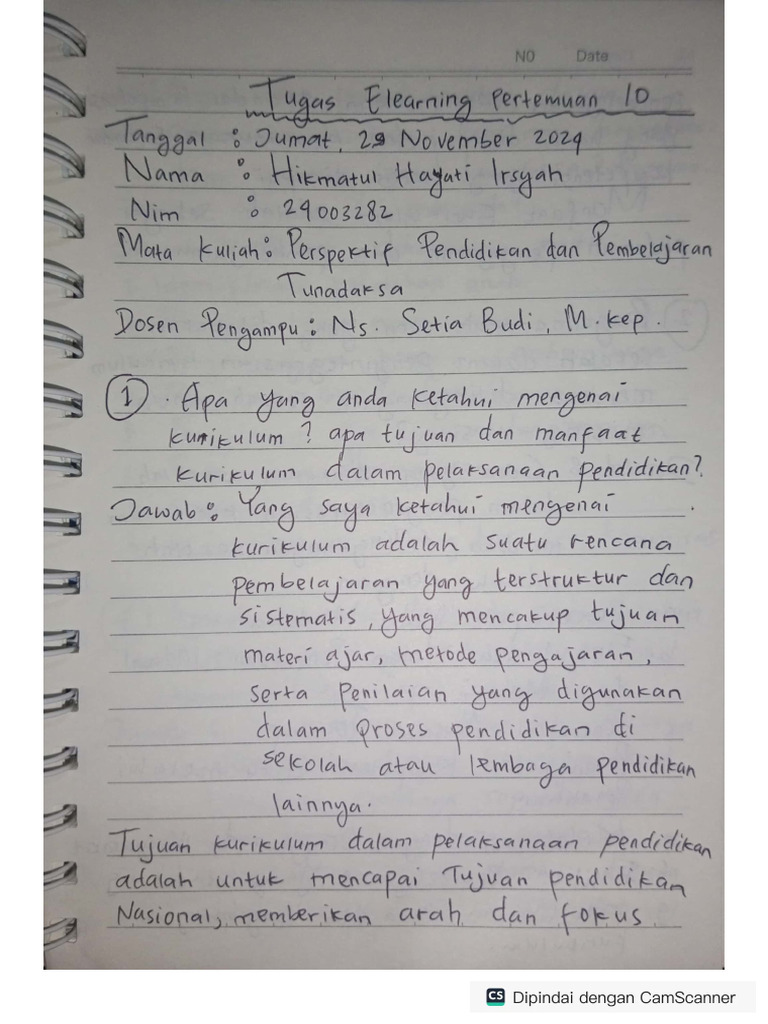 NO Date
Tugas Elearning Pertemuan 10
Tanggal : Jumat, 29 November 2024
Nama : Hikmatul Hayati Irsyah
Nim : 24003282
Mata Kuliah : Perspektif Pendidikan dan Pembelajaran
Tunadaksa
Dosen Pengampu : Ns. Setia Budi, M.kep.
1. Apa yang anda ketahui mengenai
kurikulum ? apa tujuan dan manfaat
kurikulum dalam pelaksanaan pendidikan?
Jawab : Yang saya ketahui mengenai
kurikulum adalah suatu rencana
pembelajaran yang terstruktur dan
sistematis, yang mencakup tujuan
materi ajar, metode pengajaran,
serta penilaian yang digunakan
dalam proses pendidikan di
sekolah atau lembaga pendidikan
lainnya.
Tujuan kurikulum dalam pelaksanaan pendidikan
adalah untuk mencapai Tujuan pendidikan
Nasional, memberikan arah dan fokus
CS Dipindai dengan CamScanner